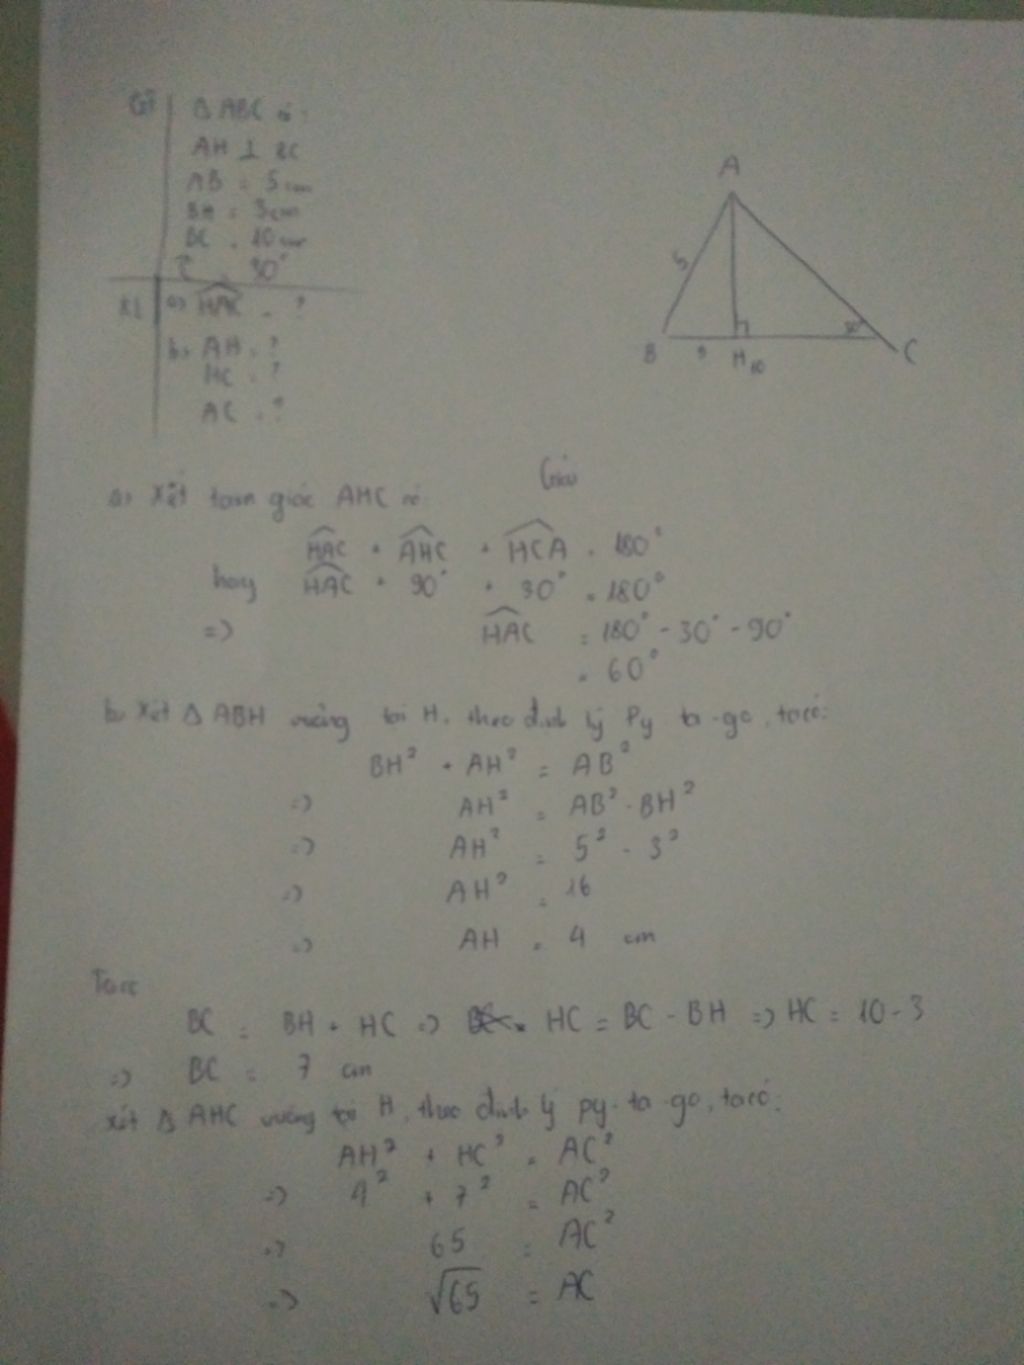 Gt | Δ ABC có:
AH ⊥ BC
AB = 5 cm
BH = 3 cm
BC = 10 cm
Ĉ = 30°
KL | a) HAC = ?
b, AH = ?
HC = ?
AC = ?
A
5
B 3 H 10 C
30°
Giải
a) Xét tam giác AHC có
HAC + AHC + HCA = 180°
hay HAC + 90° + 30° = 180°
=> HAC = 180° - 30° - 90°
= 60°
b, Xét Δ ABH vuông tại H, theo định lý Py ta-go, ta có:
BH² + AH² = AB²
=> AH² = AB² - BH²
=> AH² = 5² - 3²
=> AH² = 16
=> AH = 4 cm
Ta có
BC = BH + HC => HC = BC - BH => HC = 10 - 3
=> BC = 7 cm
Xét Δ AHC vuông tại H, theo định lý py-ta-go, ta có:
AH² + HC² = AC²
=> 4² + 7² = AC²
=> 65 = AC²
=> √65 = AC